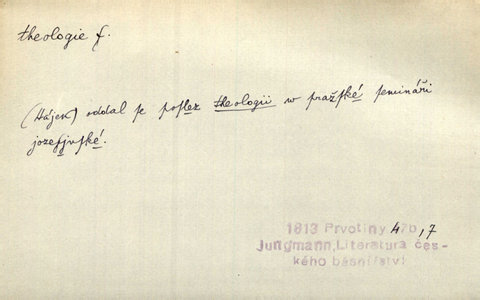 theologie f.
(Hájek) oddal se poslez theologii w pražské semináři
jozefjnské.
1813 Prvotiny 470,7
Jungmann, Literatura čes-
kého básnířství